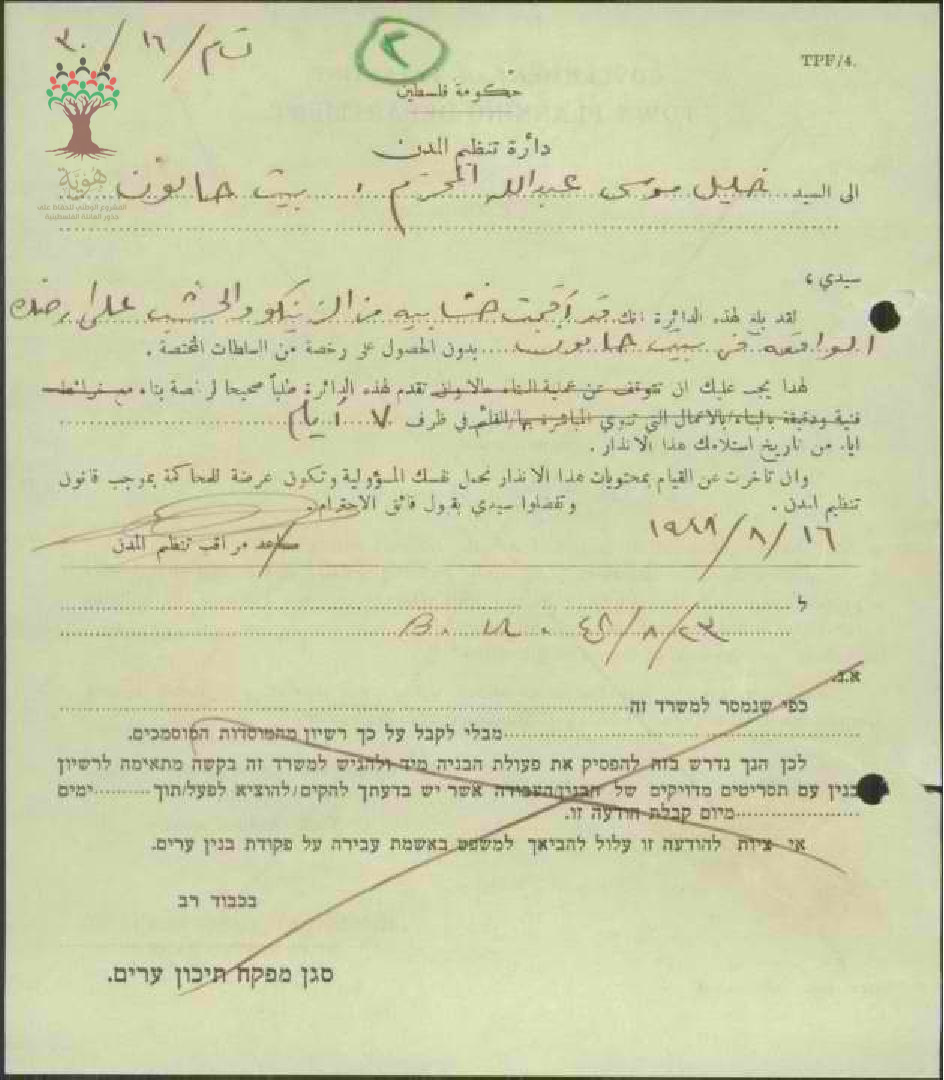 ت ام/١٦/٣٠
٢
TPF/4.
حكومة فلسطين
دائرة تنظيم المدن
الى السيد خليل موسى عبدالله المحترم ، بيت حانون
هوية
المشروع الوطني للحفاظ على
جذور العائلة الفلسطينية
سيدي ،
لقد بلغ لهذه الدائرة انك قد أقمت خشابيه من الزينكو والخشب على ارضك
الواقعه في بيت حانون بدون الحصول على رخصة من السلطات المختصة .
لهذا يجب عليك ان تتوقف عن عملية البناء حالا وان تقدم لهذه الدائرة طلباً صحيحا لرخصة بناء مع خرائط
فنية ودقيقة بالبناء/بالاعمال التي تنوي المباشرة بها/القلم في ظرف ٧ أيام
ايام من تاريخ استلامك هذا الانذار .
وان تأخرت عن القيام بمحتويات هذا الانذار تحمل نفسك المسؤولية وتكون عرضة للمحاكمة بموجب قانون
تنظيم المدن . وتفضلوا سيدي بقبول فائق الاحترام .
١٦/٨/١٩٤٢
مساعد مراقب تنظيم المدن
ل
٢٣/٨/٤٢
א.נ.
כפי שנמסר למשרד זה
מבלי לקבל על כך רשיון מהמוסדות המוסמכים.
לכן הנך נדרש בזה להפסיק את פעולת הבניה מיד ולהגיש למשרד זה בקשה מתאימה לרשיון
בנין עם תסריטים מדויקים של הבנין/העבודה אשר יש בדעתך להקים/להוציא לפעל/תוך ימים
מיום קבלת הודעה זו.
אי ציות להודעה זו עלול להביאך למשפט באשמת עבירה על פקודת בנין ערים.
בכבוד רב
סגן מפקח תיכון ערים.